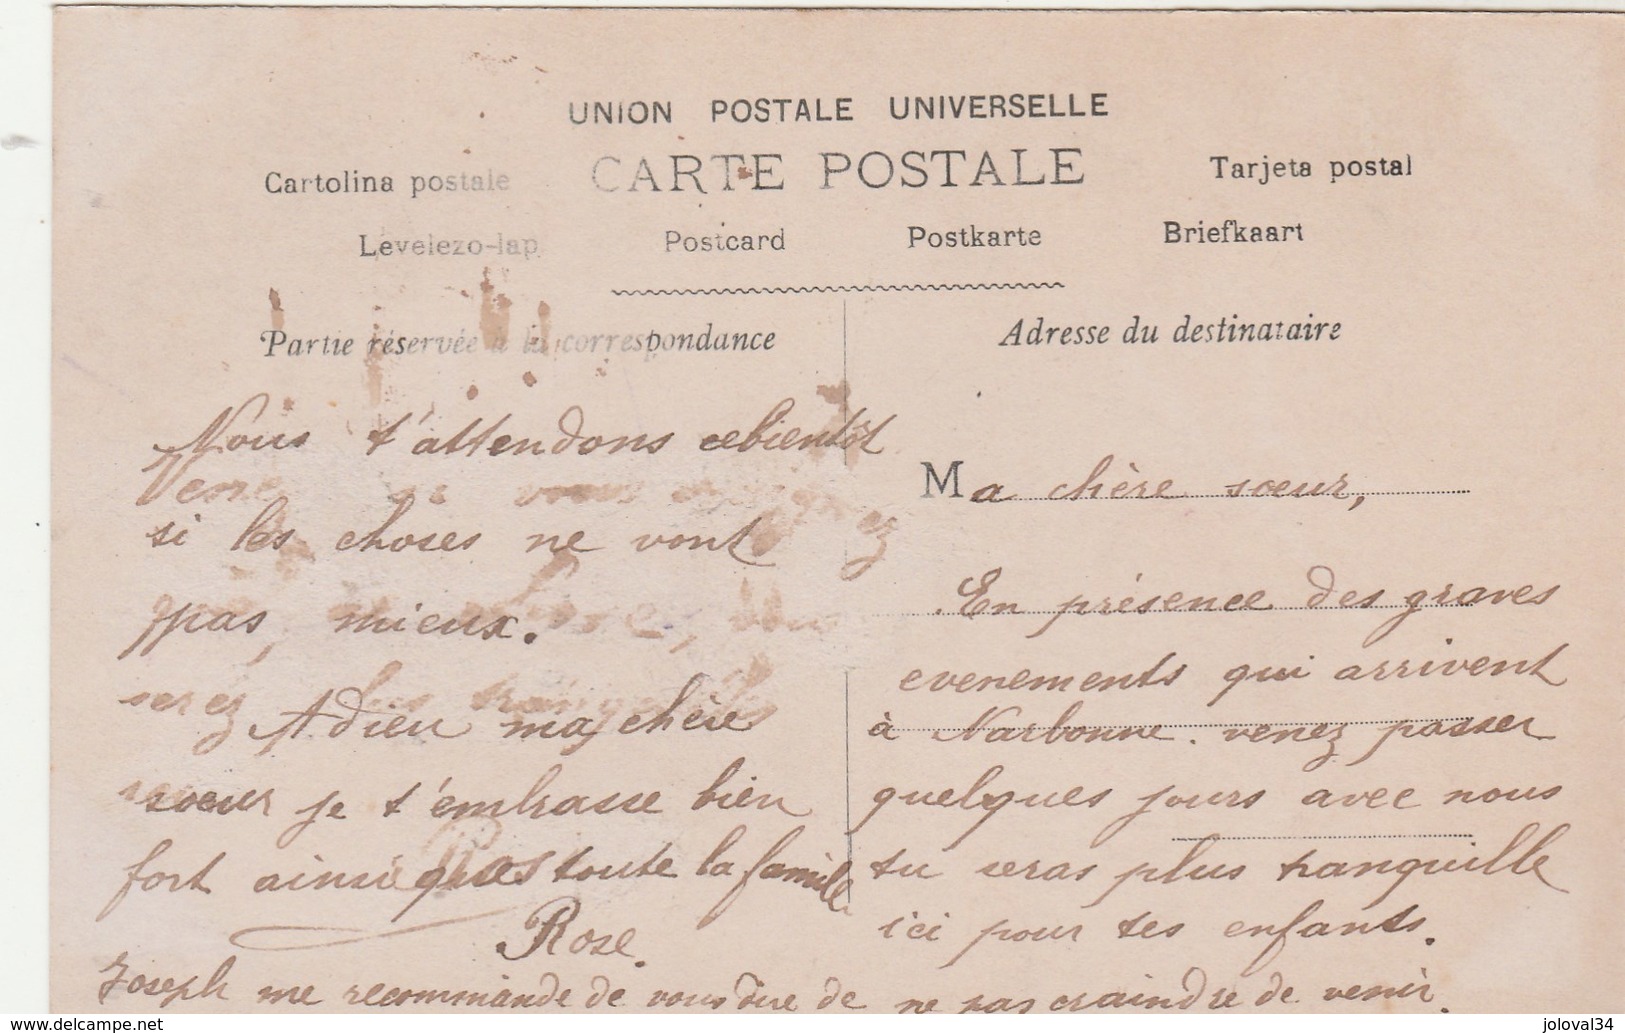 UNION POSTALE UNIVERSELLE
CARTE POSTALE
Cartolina postale
Tarjeta postal
Levelezo-lap
Postcard
Postkarte
Briefkaart
Partie réservée à la correspondance
Adresse du destinataire
Ma chère soeur,
En présence des graves
evenements qui arrivent
à Narbonne. venez passer
quelques jours avec nous
tu seras plus tranquille
ici pour tes enfants.
Nous t'attendons bientôt
si les choses ne vont
pas, mieux.
Adieu ma chère
soeur je t'embrasse bien
fort ainsi que toute la famille
Rose.
Joseph me recommande de vous dire de ne pas craindre de venir.
joloval34